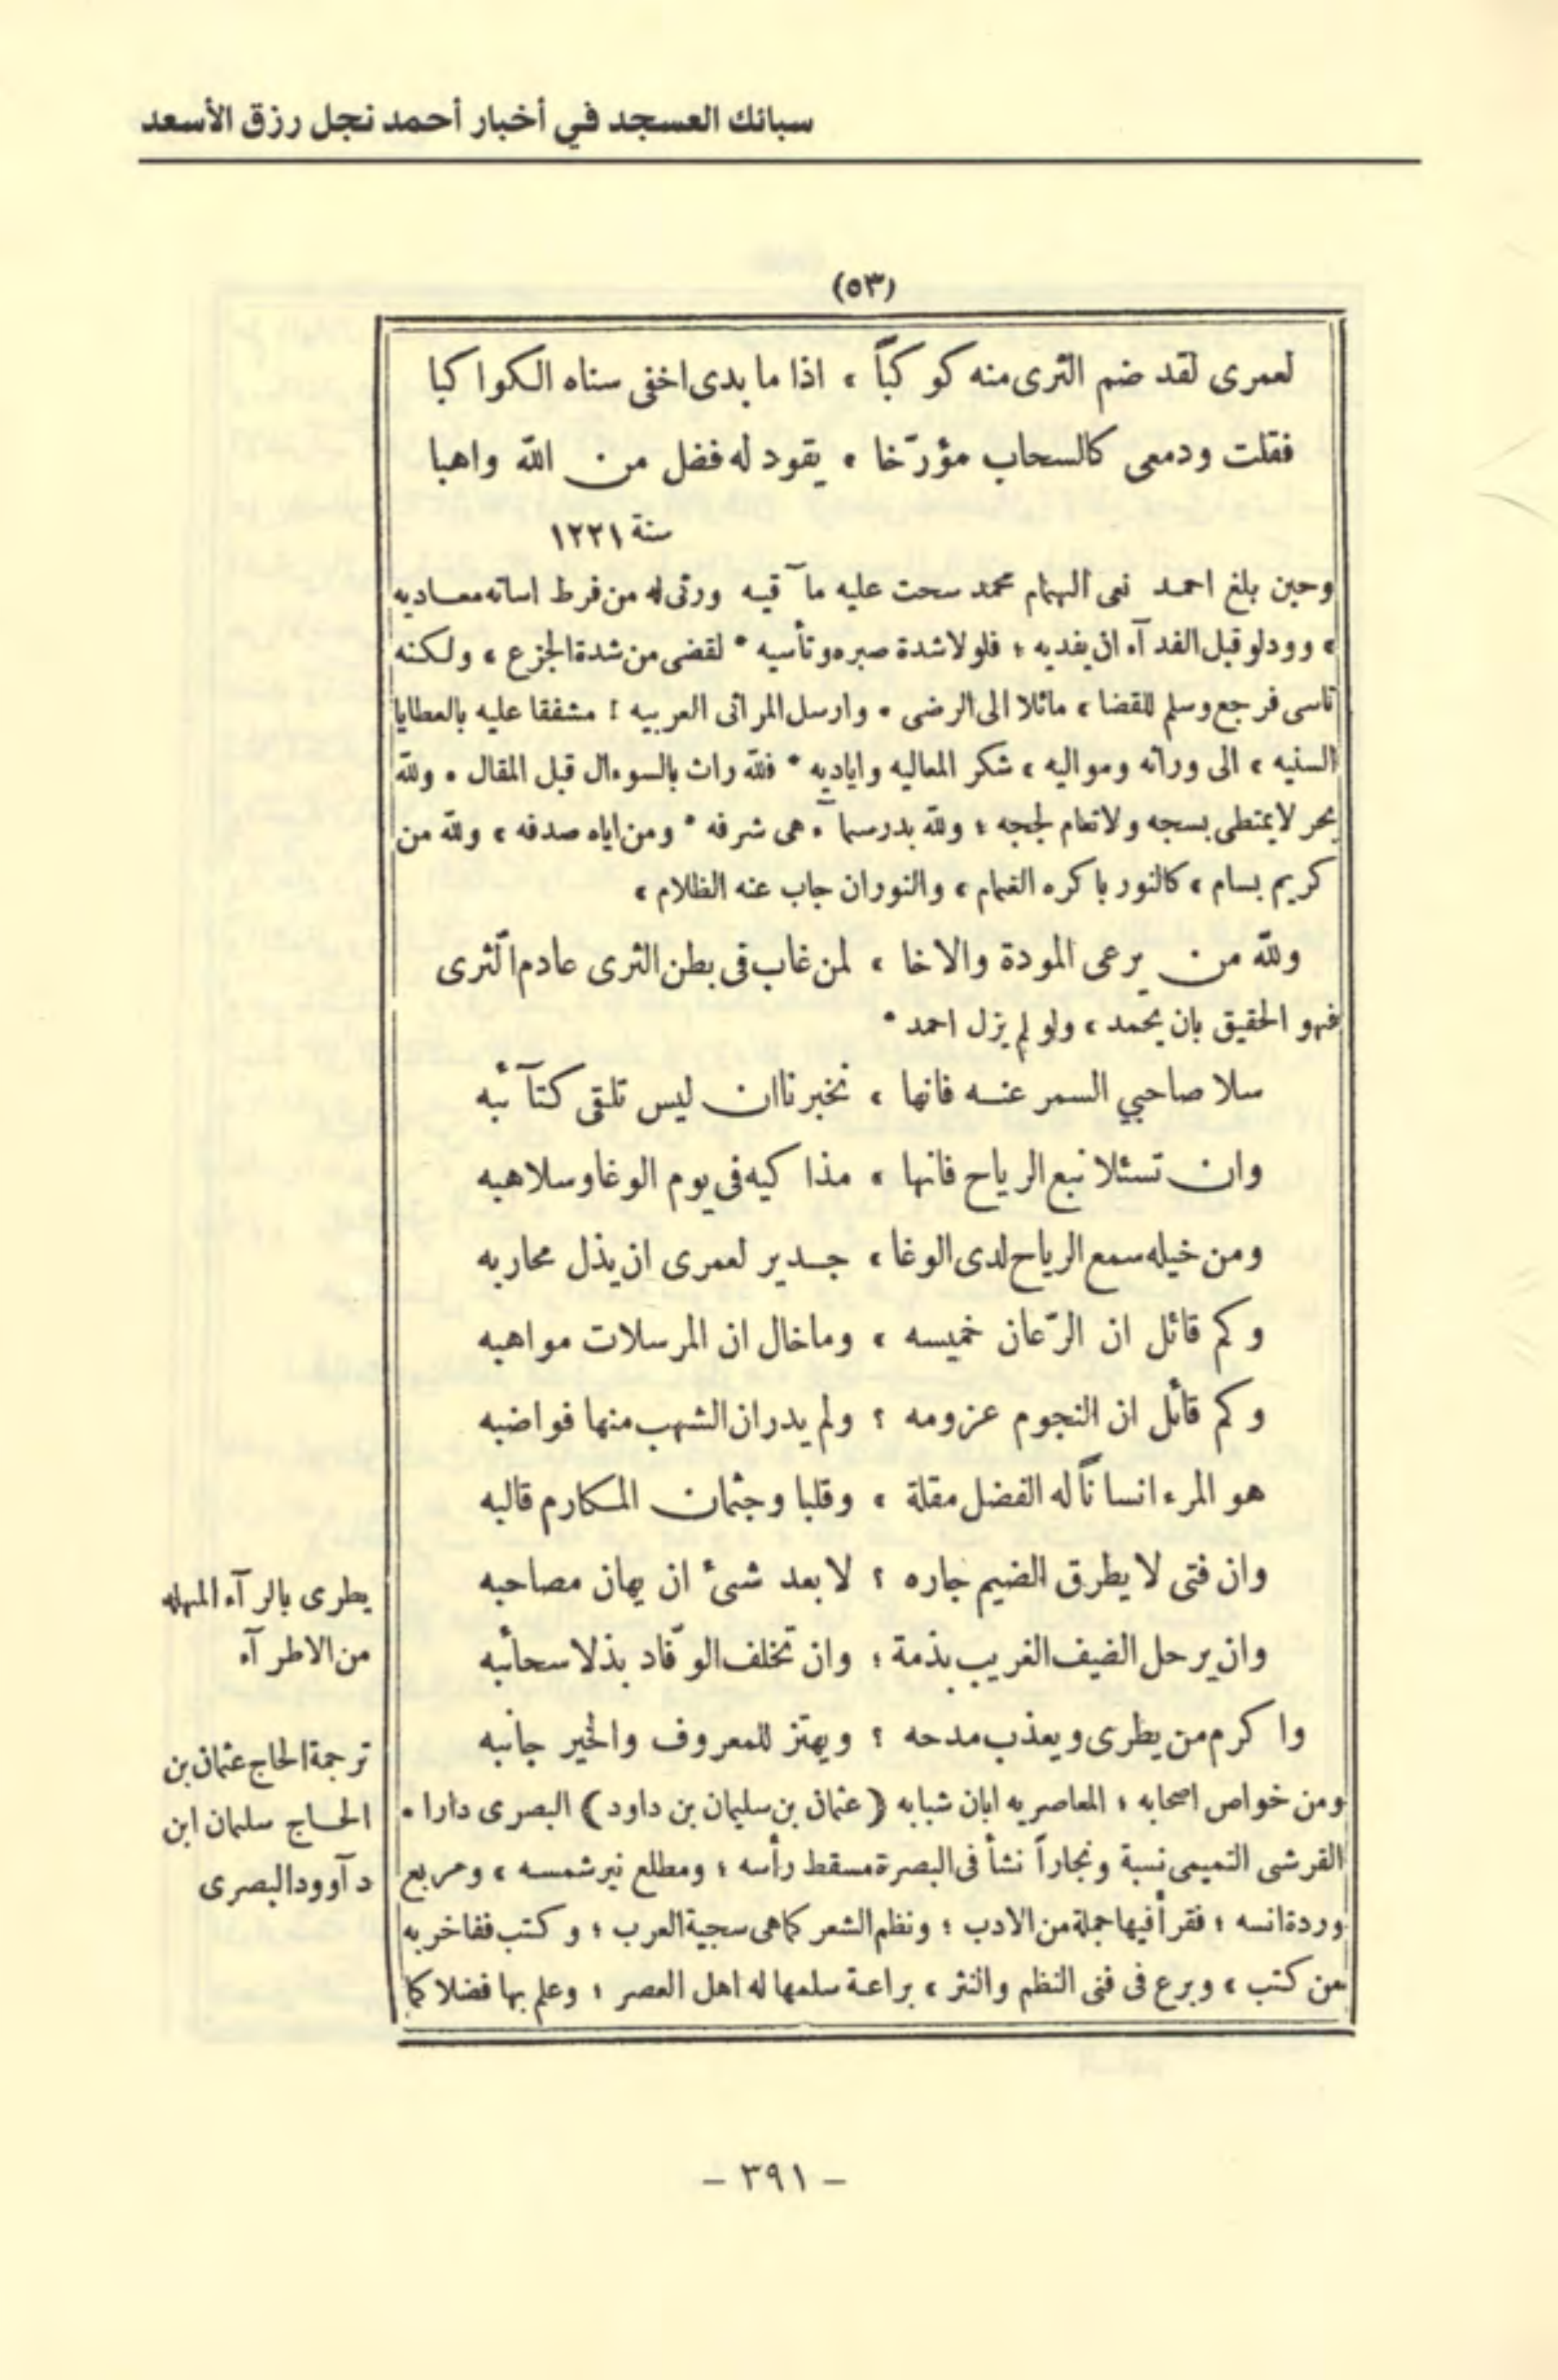 سبائك العسجد في أخبار أحمد نجل رزق الأسعد
(٥٣)
لعمرى لقد ضم الثرى منه كوكبًا ، اذا ما بدى اخفى سناه الكواكبا
فقلت ودمعى كالسحاب مؤرّخا ، يقود له فضل من الله واهبا
سنة ١٢٢١
وحين بلغ احمد نعى الهمام محمد سحت عليه مآقيه ورثى له من فرط اساته معاديه
، وود لو قبل الفدآء ان يفديه ؛ فلولا شدة صبره وتأسيه * لقضى من شدة الجزع ، ولكنه
تاسى فرجع وسلم للقضا ، مائلا الى الرضى . وارسل المراثى العربيه ! مشفقا عليه بالعطايا
السنيه ، الى وراثه ومواليه ، شكر المعاليه واياديه * فلله راث بالسوءال قبل المقال . ولله
بحر لا يمتطى بسجه ولا تعام لججه ؛ ولله بدر سمآء هى شرفه * ومن اياه صدفه ، ولله من
كريم بسام ، كالنور باكره الغمام ، والنور ان جاب عنه الظلام ،
ولله من يرعى المودة والاخا ، لمن غاب فى بطن الثرى عادم الثرى
فهو الحقيق بان يحمد ، ولو لم يزل احمد *
سلا صاحبي السمر عنه فانها ، تخبرنا ان ليس تلقى كتآئبه
وان تسئلا نبع الرياح فانها ، مذاكيه فى يوم الوغا وسلاهبه
ومن خيله سمع الرياح لدى الوغا ، جدير لعمرى ان يذل محاربه
وكم قائل ان الرّعان خميسه ، وما خال ان المرسلات مواهبه
وكم قائل ان النجوم عزومه ؟ ولم يدر ان الشهب منها قواضبه
هو المرء انسانًا له الفضل مقلة ، وقلبا وجثمان المكارم قالبه
وان فتى لا يطرق الضيم جاره ؟ لا بعد شئ ان يهان مصاحبه
وان يرحل الضيف الغريب بذمة ؛ وان تخلف الوفّاد بذلا سحائبه
واكرم من يطرى ويعذب مدحه ؟ ويهتز للمعروف والخير جانبه
يطرى بالرآء المهمله
من الاطرآء
ومن خواص اصحابه ؛ المعاصر به ابان شبابه (عثمان بن سليمان بن داود) البصرى دارا .
القرشى التميمى نسبة ونجاراً نشأ فى البصرة مسقط رأسه ؛ ومطلع نير شمسه ، ومربع
وردة انسه ؛ فقرأ فيها جملة من الادب ؛ ونظم الشعر كما هى سجية العرب ؛ وكتب ففاخر به
من كتب ، وبرع فى فنى النظم والنثر ، براعة سلمها له اهل العصر ؛ وعلم بها فضلا كما
ترجمة الحاج عثمان بن
الحاج سليمان ابن
دآوود البصرى
– ٣٩١ –